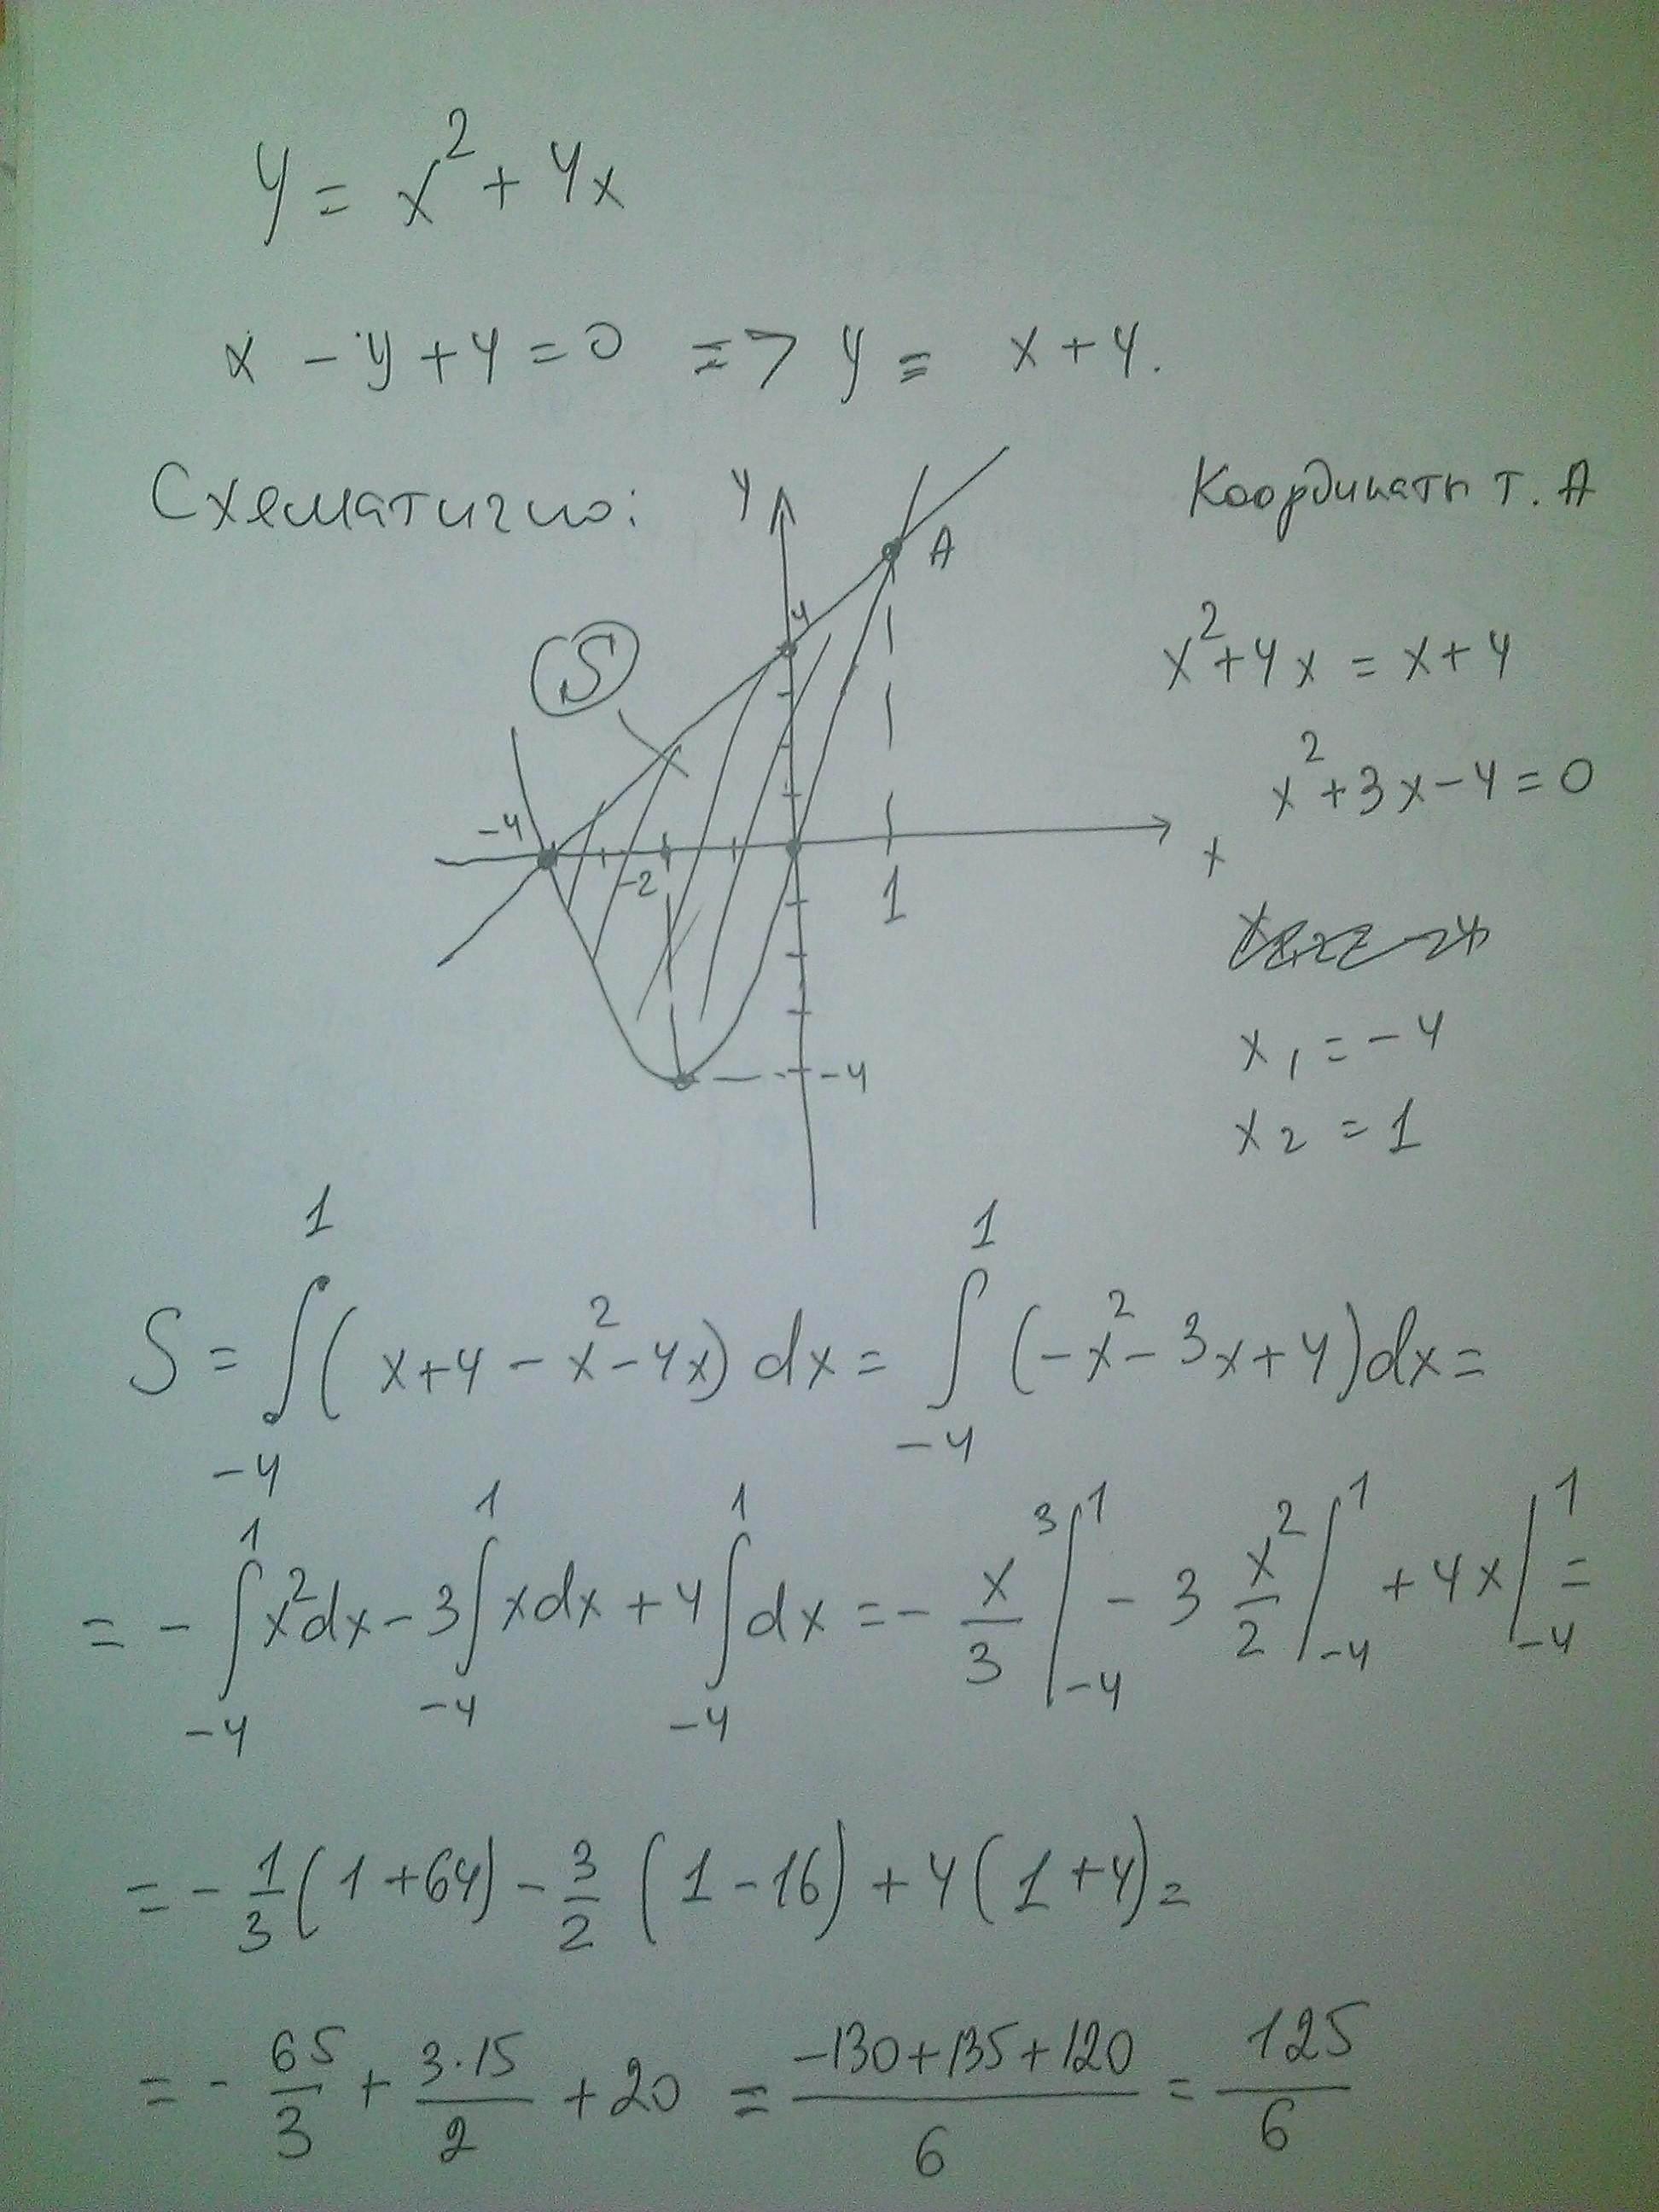 y = x² + 4x
x - y + 4 = 0 => y = x + 4.
Схематично:
y
A
4
S
-4
-2
1
x
-4
Координаты т. A
x² + 4x = x + 4
x² + 3x - 4 = 0
x₁ = -4
x₂ = 1
S = ∫₋₄¹ (x + 4 - x² - 4x) dx = ∫₋₄¹ (-x² - 3x + 4) dx =
= - ∫₋₄¹ x² dx - 3 ∫₋₄¹ x dx + 4 ∫₋₄¹ dx = - x³/3 |₋₄¹ - 3 x²/2 |₋₄¹ + 4x |₋₄¹ =
= - 1/3 (1 + 64) - 3/2 (1 - 16) + 4 (1 + 4) =
= - 65/3 + 3·15/2 + 20 = (-130 + 135 + 120)/6 = 125/6